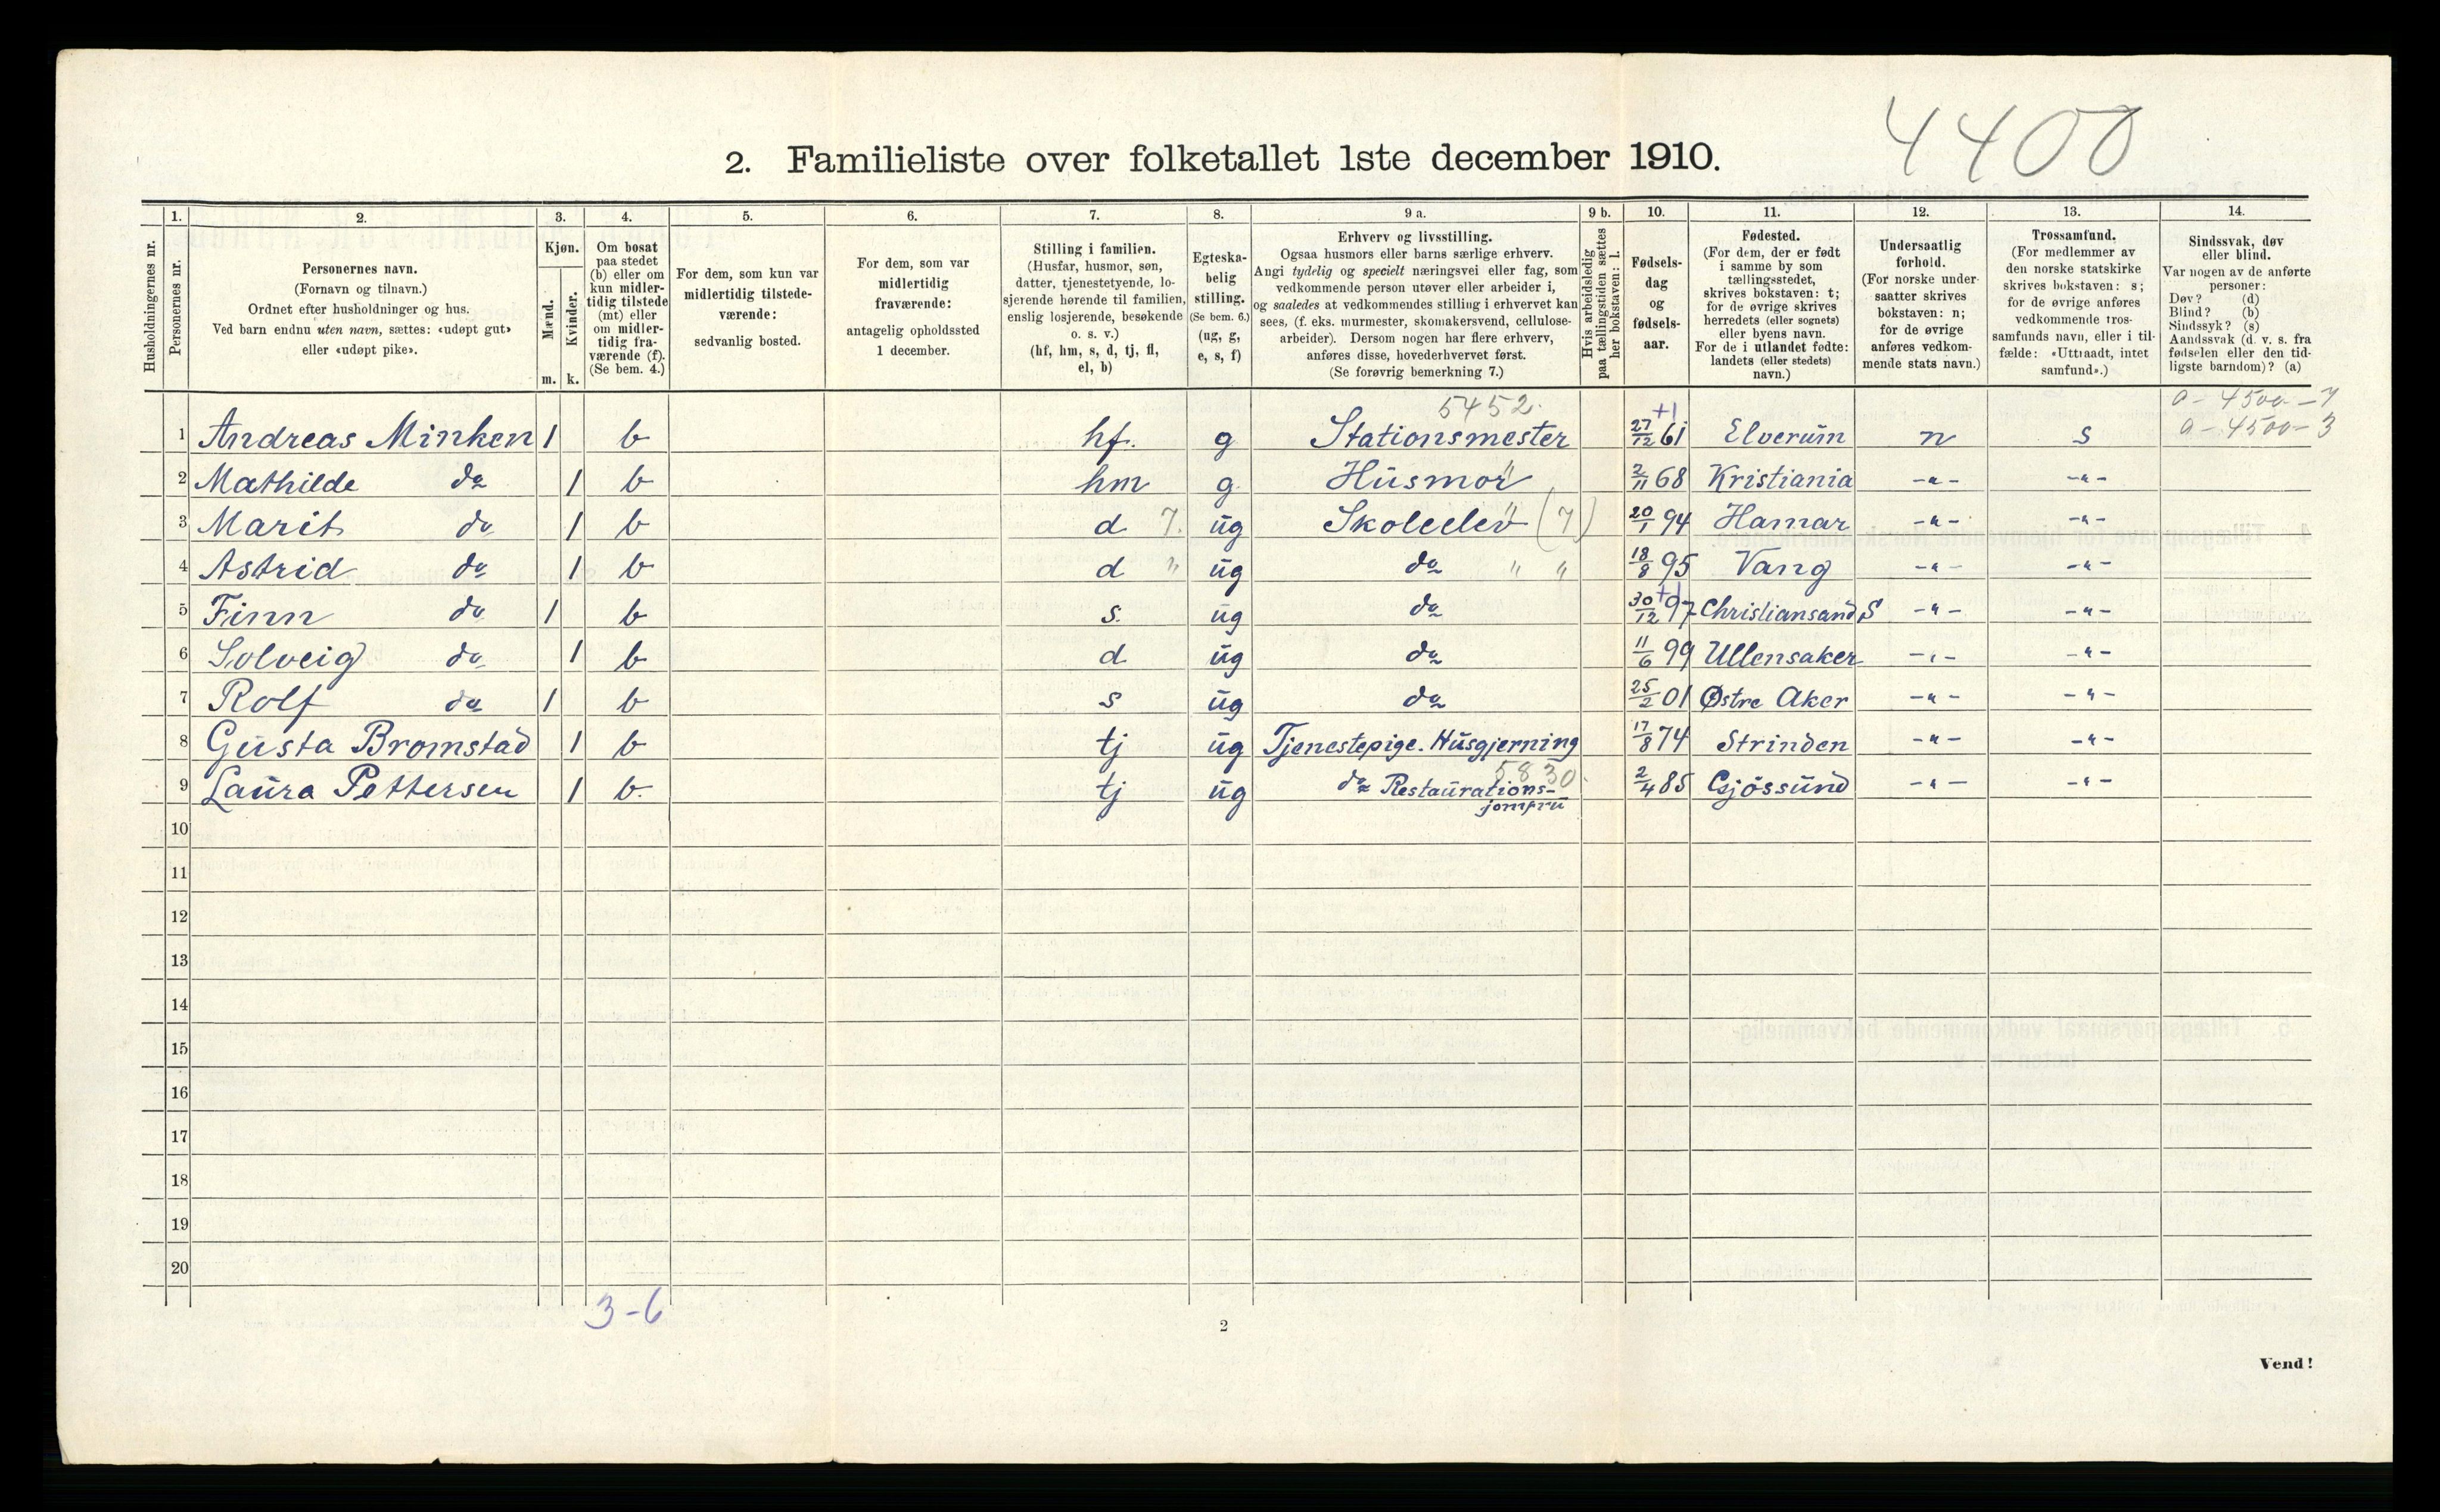 4400
2. Familieliste over folketallet 1ste december 1910.
Husholdningernes nr.
1.
Personernes nr.
2.
Personernes navn.
(Fornavn og tilnavn.)
Ordnet efter husholdninger og hus.
Ved barn endnu uten navn, sættes: «udøpt gut»
eller «udøpt pike».
3.
Kjøn.
Mænd.
Kvinder.
m. k.
4.
Om bosat
paa stedet
(b) eller om
kun midler-
tidig tilstede
(mt) eller
om midler-
tidig fra-
værende (f).
(Se bem. 4.)
5.
For dem, som kun var
midlertidig tilstede-
værende:
sedvanlig bosted.
6.
For dem, som var
midlertidig
fraværende:
antagelig opholdssted
1 december.
7.
Stilling i familien.
(Husfar, husmor, søn,
datter, tjenestetyende, lo-
sjerende hørende til familien,
enslig losjerende, besøkende
o. s. v.)
(hf, hm, s, d, tj, fl,
el, b)
8.
Egteska-
belig
stilling.
(Se bem. 6.)
(ug, g,
e, s, f)
9 a.
Erhverv og livsstilling.
Ogsaa husmors eller barns særlige erhverv.
Angi tydelig og specielt næringsvei eller fag, som
vedkommende person utøver eller arbeider i,
og saaledes at vedkommendes stilling i erhvervet kan
sees, (f. eks. murmester, skomakersvend, cellulose-
arbeider). Dersom nogen har flere erhverv,
anføres disse, hovederhvervet først.
(Se forøvrig bemerkning 7.)
9 b.
Hvis arbeidsledig
paa tællingstiden sættes
her bokstaven: l.
10.
Fødsels-
dag
og
fødsels-
aar.
11.
Fødested.
(For dem, der er født
i samme by som
tællingsstedet,
skrives bokstaven: t;
for de øvrige skrives
herredets (eller sognets)
eller byens navn.
For de i utlandet fødte:
landets (eller stedets)
navn.)
12.
Undersaatlig
forhold.
(For norske under-
saatter skrives
bokstaven: n;
for de øvrige
anføres vedkom-
mende stats navn.)
13.
Trossamfund.
(For medlemmer av
den norske statskirke
skrives bokstaven: s;
for de øvrige anføres
vedkommende tros-
samfunds navn, eller i til-
fælde: «Uttraadt, intet
samfund».)
14.
Sindssvak, døv
eller blind.
Var nogen av de anførte
personer:
Døv? (d)
Blind? (b)
Sindssyk? (s)
Aandssvak (d. v. s. fra
fødselen eller den tid-
ligste barndom)? (a)
5452. +1
1 Andreas Minken 1 b hf. g Stationsmester 27/12 61 Elverum n s a - 4500 - 3
2 Mathilde do 1 b hm g Husmor " 2/11 68 Kristiania -"- -"-
3 Marit do 1 b d 7. ug Skoleelev " (7) 20/1 94 Hamar -"- -"-
4 Astrid do 1 b d " ug do " " 18/8 95 Vang -"- -"-
5 Finn do 1 b s. ug do 30/12 97 +1 Christiansand S -"- -"-
6 Solveig do 1 b d ug do 11/6 99 Ullensaker -"- -"-
7 Rolf do 1 b s ug do 25/2 01 Østre Aker -"- -"-
8 Gusta Bromstad 1 b tj ug Tjenestepige. Husgjerning 17/8 74 Strinden -"- -"-
9 Laura Pettersen 1 b. tj ug do Restaurations- 5830. 2/4 85 Gjössund -"- -"-
jomfru
10
11
12
13
14
15
16
17
18
19
20
3-6
2
Vend!